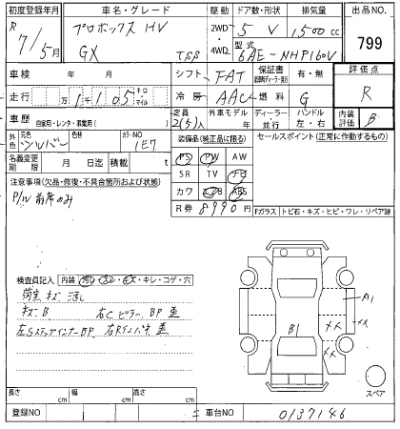 初度登録年月 車名・グレード 駆動 ドア数・形状 排気量 出品NO.
R 7/5月 プロボックス HV GX TSS 2WD・4WD 5 V 1,500cc 799
型式 6AE-NHP160V
車検 年 月 シフト FAT 保証書 有・無 評価点
走行 万 1千 105 キロ マイル 冷房 AAC 燃料 G R
車歴 自家用・レンタ・事業用( ) 定員 2(5)人 外車モデル 年 ディーラー 並行 ハンドル 左・右 内装評価 B
外色 元色 シルバー カラーNO 1E7 装備品(純正品に限る) セールスポイント(正常に作動するもの)
名義変更期限 月 日迄 積載 t PS PW AW
注意事項(欠品・修復・不具合箇所および状態) SR TV
P/W 前席のみ カワ ABS
R券 8990円
Fガラス トビ石・キズ・ヒビ・ワレ・リペア跡
検査員記入 内装 キレ・コゲ・穴
荷室 キズ
キズ B 右Cピラー BP 歪
左SステップインナーBP
A1
B1
スペア
長さ cm 幅 cm 高さ cm
登録NO 車台NO 0137146